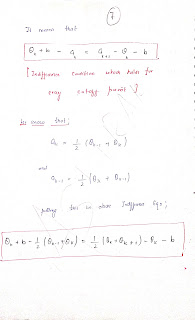 7
It means that
θk + b - ak = ak+1 - θk - b
[ Indifference condition which holds for
every cutoff point ].
We know that:
ak = 1/2 (θk-1 + θk)
and
putting this in above Indifference Eqn;
θk + b - 1/2 (θk-1 + θk) = 1/2 (θk + θk+1) - θk - b